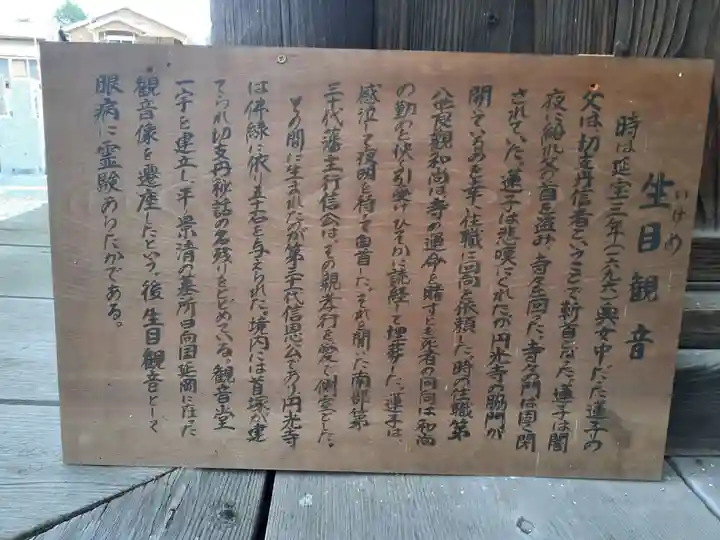 生目観音
いけめ
時は延宝三年(一六九六)奥女中だった蓮子の
父は、切支丹信者ということで斬首になった。蓮子は闇
夜に紛れ父の首を盗み、寺々を回った。寺々の門は固く閉
されていた。蓮子は悲嘆にくれたが円光寺の脇門が
開いているのを幸い住職に回向を依頼した。時の住職第
八世良観和尚は寺の運命を賭すとも死者の回向は和尚
の勤めと快く引受けひそかに読経して埋葬した。蓮子は、
感泣して夜明を待って自首した。それを聞いた南部第
三十代藩主行信公は、その親孝行を愛で側室とした。
その間に生まれたのが第三十一代信恩公であり円光寺
は佛縁に依り五十石を与えられた。境内には首塚が建
てられ切支丹秘話の名残りをとどめている。観音堂
一宇を建立し、平景清の墓所日向国延岡に在った
観音像を遷座したという。後生目観音として
眼病に霊験あらたかである。